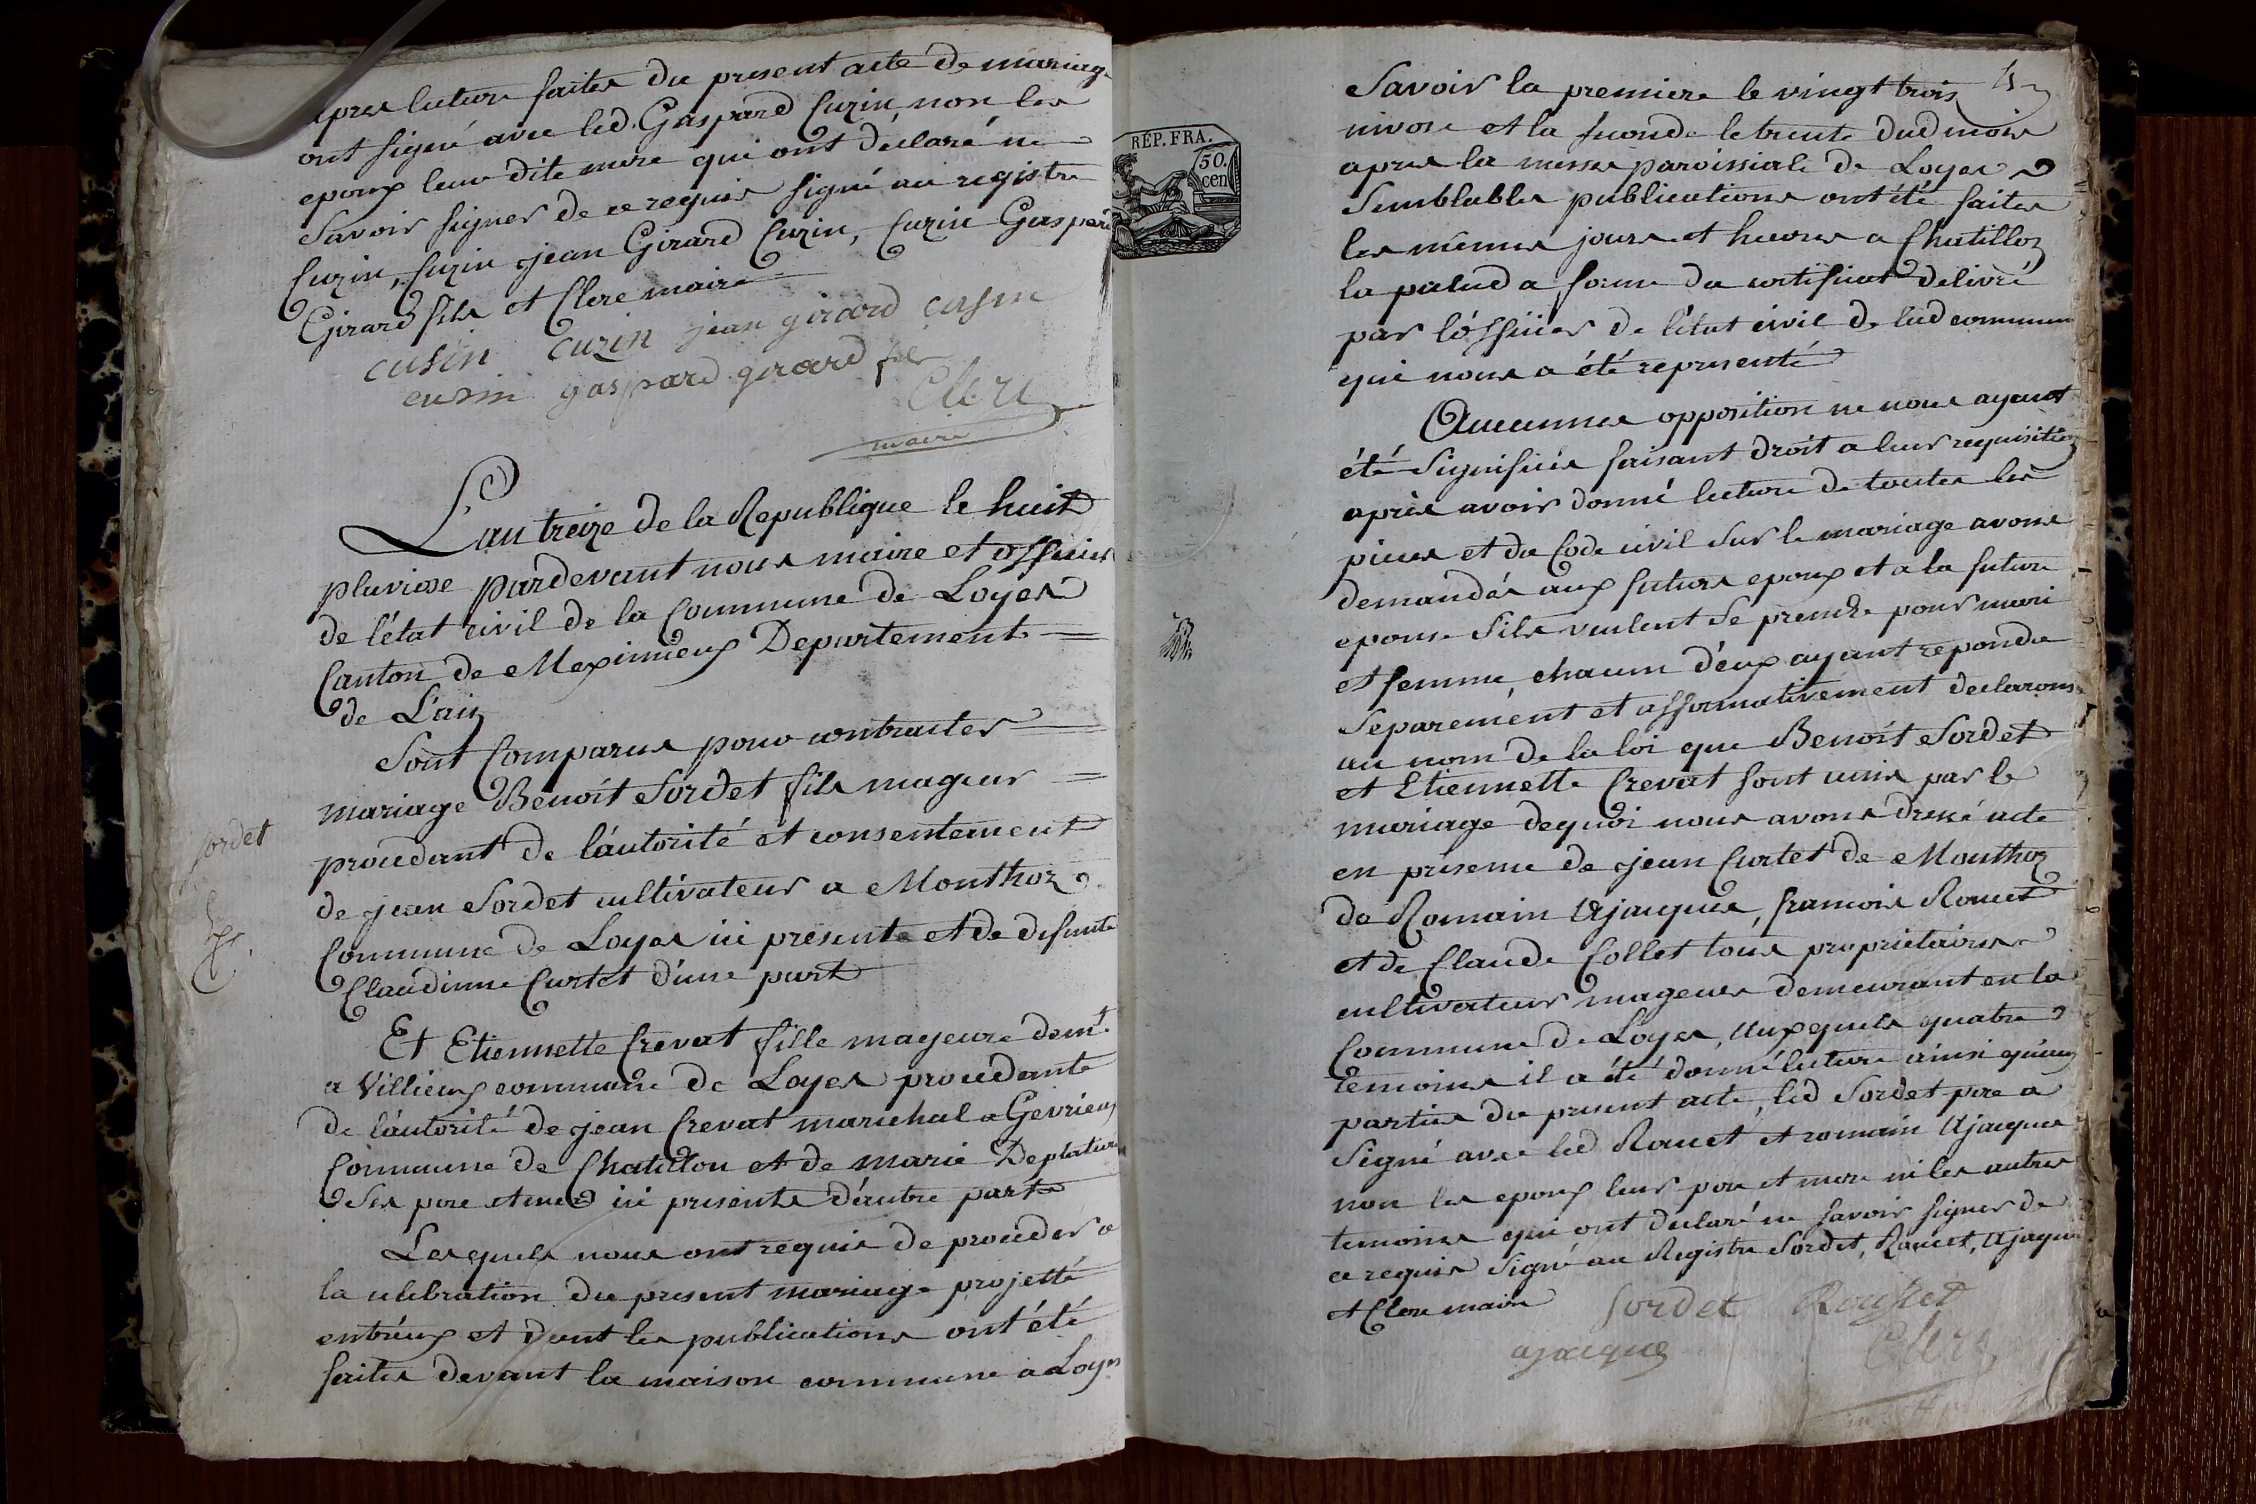 apres lecture faites du present acte de mariage
ont signé avec led. Gaspard Curin, non les
epoux leur dite mere qui ont déclaré ne
Savoir signer de ce requis signé au registre
Curin, Curin jean Girard Curin, Curin Gaspard
Girard fils et Clere maire
cusin curin jean girard cusin
cusin gaspard gerard fils
Clere
maire
L'an treize de la Republique le huit
pluviose pardevant nous maire et officier
de l'état civil de la Commune de Loyes
Canton de Meximieux Departement
de L'ain
Sont Comparus pour contracter
mariage Benoit Sordet fils mageur
procedant de l'autorité et consentement
de jean Sordet cultivateur a Monthoz
Commune de Loyes ici présente et de defunte
Claudinne Curtet d'une part
Sordet
Et Etiennette Crevat fille mageure demt.
a Villieux commune de Loyes procedante
de l'autorité de jean Crevat marechal a Gevrieux
Commune de Chatillon et de marie Deplature
Ses pere et mere ici presents d'autre part
Lesquels nous ont requis de proceder a
la celebration du present mariage projetté
entréux et dont les publications ont été
faites devant la maison commune a Loyes
RÉP. FRA.
50.
cen
Savoir la premiere le vingt trois
nivose et la seconde le trente dud mois
apres la messe paroissiale de Loyes
Semblables publications ont été faites
les mêmes jours et heures a Chatillon
la palud a forme du certificat delivré
par l'officier de l'état civil de lad commune
qui nous a été representé
Aucunnes opposition ne nous ayant
été Signifiés faisant droit a leur requisition
après avoir donné lecture de toutes les
pieces et du Code civil Sur le mariage avons
demandés aux futurs epoux et a la future
epouse Sils veulent Se prendre pour mari
et femme, chacun d'eux ayant repondu
Separement et affirmativement declarons
au nom de la loi que Benoit Sordet
et Etiennette Crevat sont unis par le
mariage dequoi nous avons dressé acte
en présence de jean Curtet de Monthoz
de Romain Ajacques, francois Roucet
et de Claude Collet tous proprietaires
cultivateurs mageurs demeurant en la
Commune de Loyes, auxquels quatre
temoins il a été donné lecture ainsi qu'aux
parties du present acte, led Sordet pere a
Signé avec led Roucet et romain Ajacques
non les epoux leur pere et mere ni les autres
temoins qui ont declaré ne savoir signer de
ce requis Signé au Registre Sordet, Roucet, Ajacques
et Clere maire Sordet Rousset
ajacques Clere